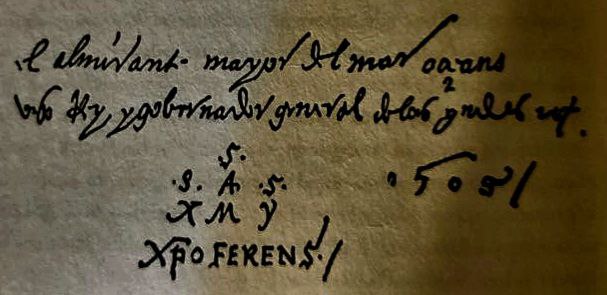 .el almirante mayor del mar oceano
viso Rey, y gobernador general de las yndias etc.
.S.
.S. A .S.
X M Y
Xp̄o FERENS./